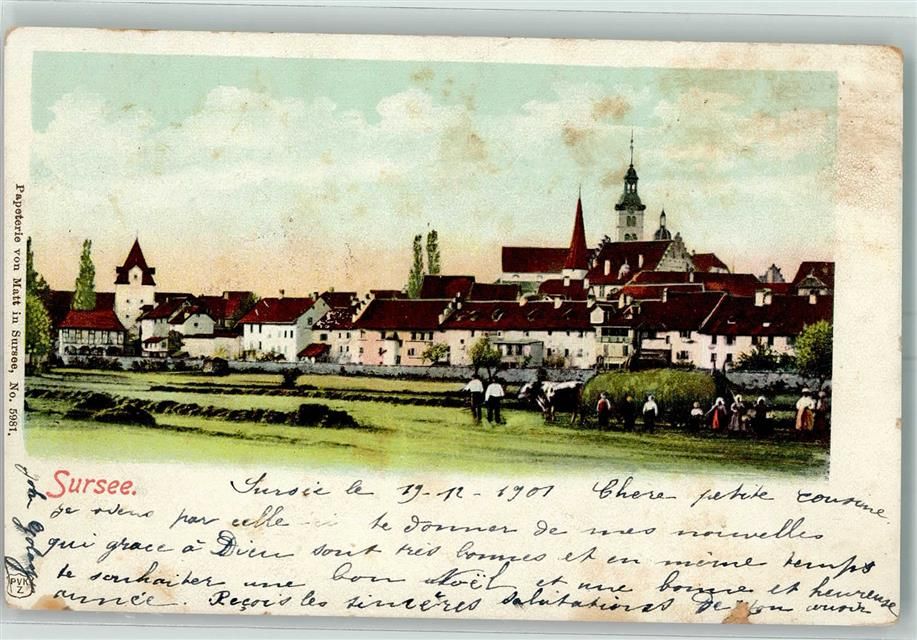 Papeterie von Matt in Sursee, No. 5981.
Sursee.
Sursée le 19-12-1901 Chere petite cousine.
Je viens par celle-ci te donner de mes nouvelles
qui grace à Dieu sont très bonnes et en même temps
te souhaiter une bon Noël et une bonne et heureuse
année. Reçois les sincères salutations de ton
PVK
Z